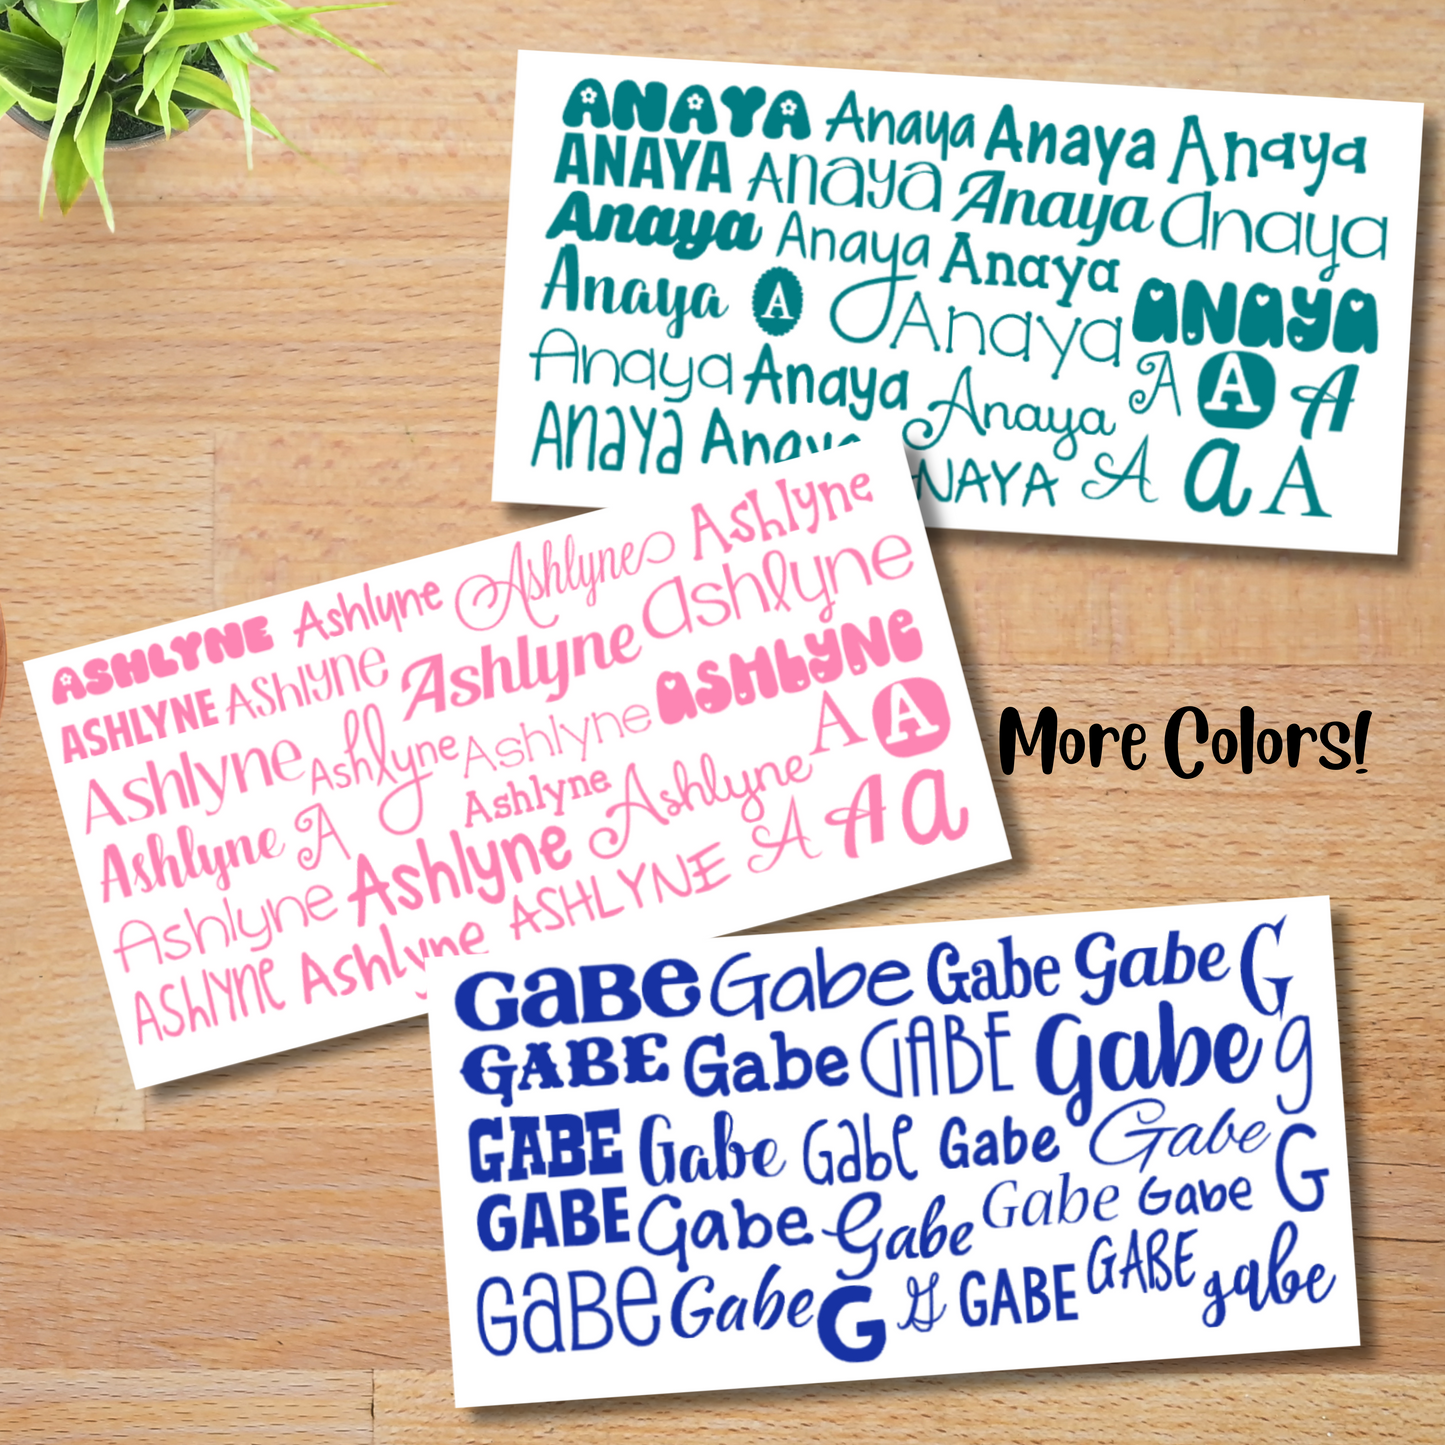 ANAYA Anaya Anaya Anaya
ANAYA ANAYA Anaya anaya
Anaya Anaya Anaya anaya
Anaya A Anaya
Anaya Anaya Anaya A A A
ANAYA Anaya ANAYA A a A
ASHLYNE Ashlyne Ashlyne Ashlyne
ASHLYNE ASHLYNE Ashlyne ashlyne
Ashlyne Ashlyne Ashlyne ASHLYNE
Ashlyne A Ashlyne Ashlyne A A
Ashlyne Ashlyne ASHLYNE A A a
ASHLYNE Ashlyne
More Colors!
GABE Gabe Gabe Gabe G
GABE Gabe GABE Gabe g
GABE Gabe Gabe Gabe Gabe G
GABE Gabe Gabe Gabe Gabe
GaBe Gabe G G GABE GABE gabe